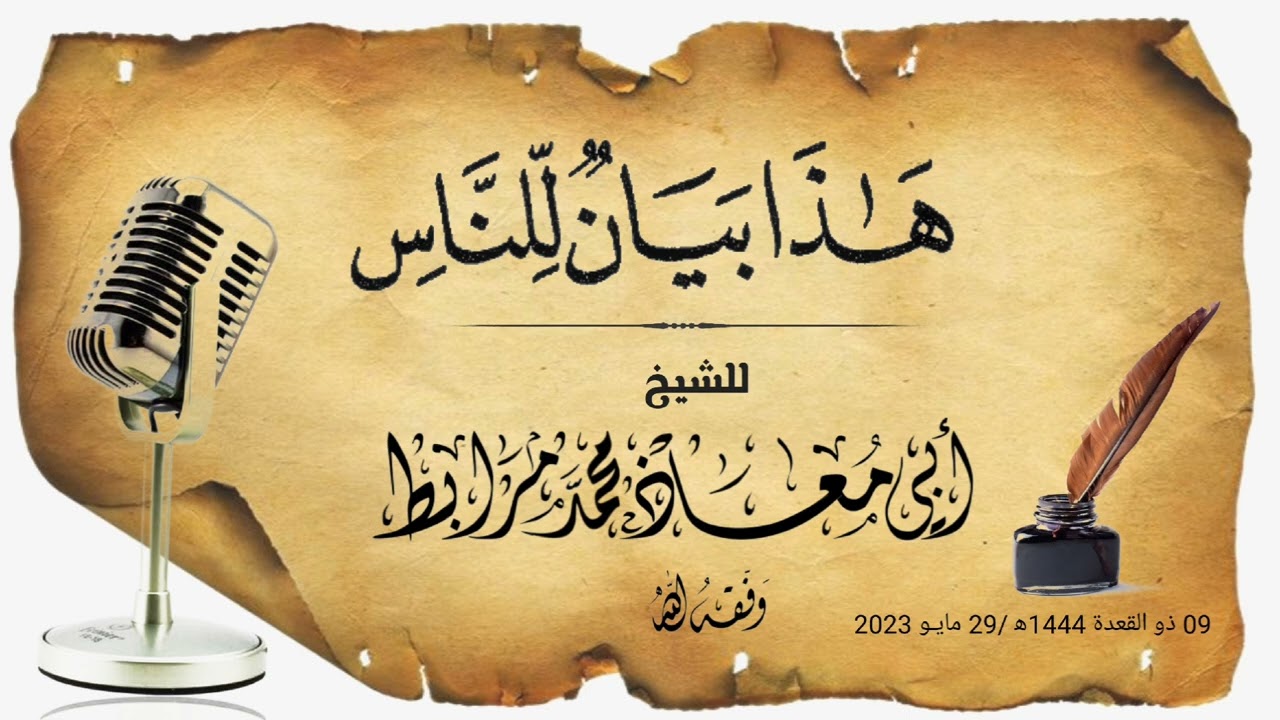 هَـٰذَا بَيَانٌ لِّلنَّاسِ
للشيخ
أبي مُعـاذ محمَّد مرَابط
وَفَّقهُ اللهُ
09 ذو القعدة 1444ه /29 مايو 2023